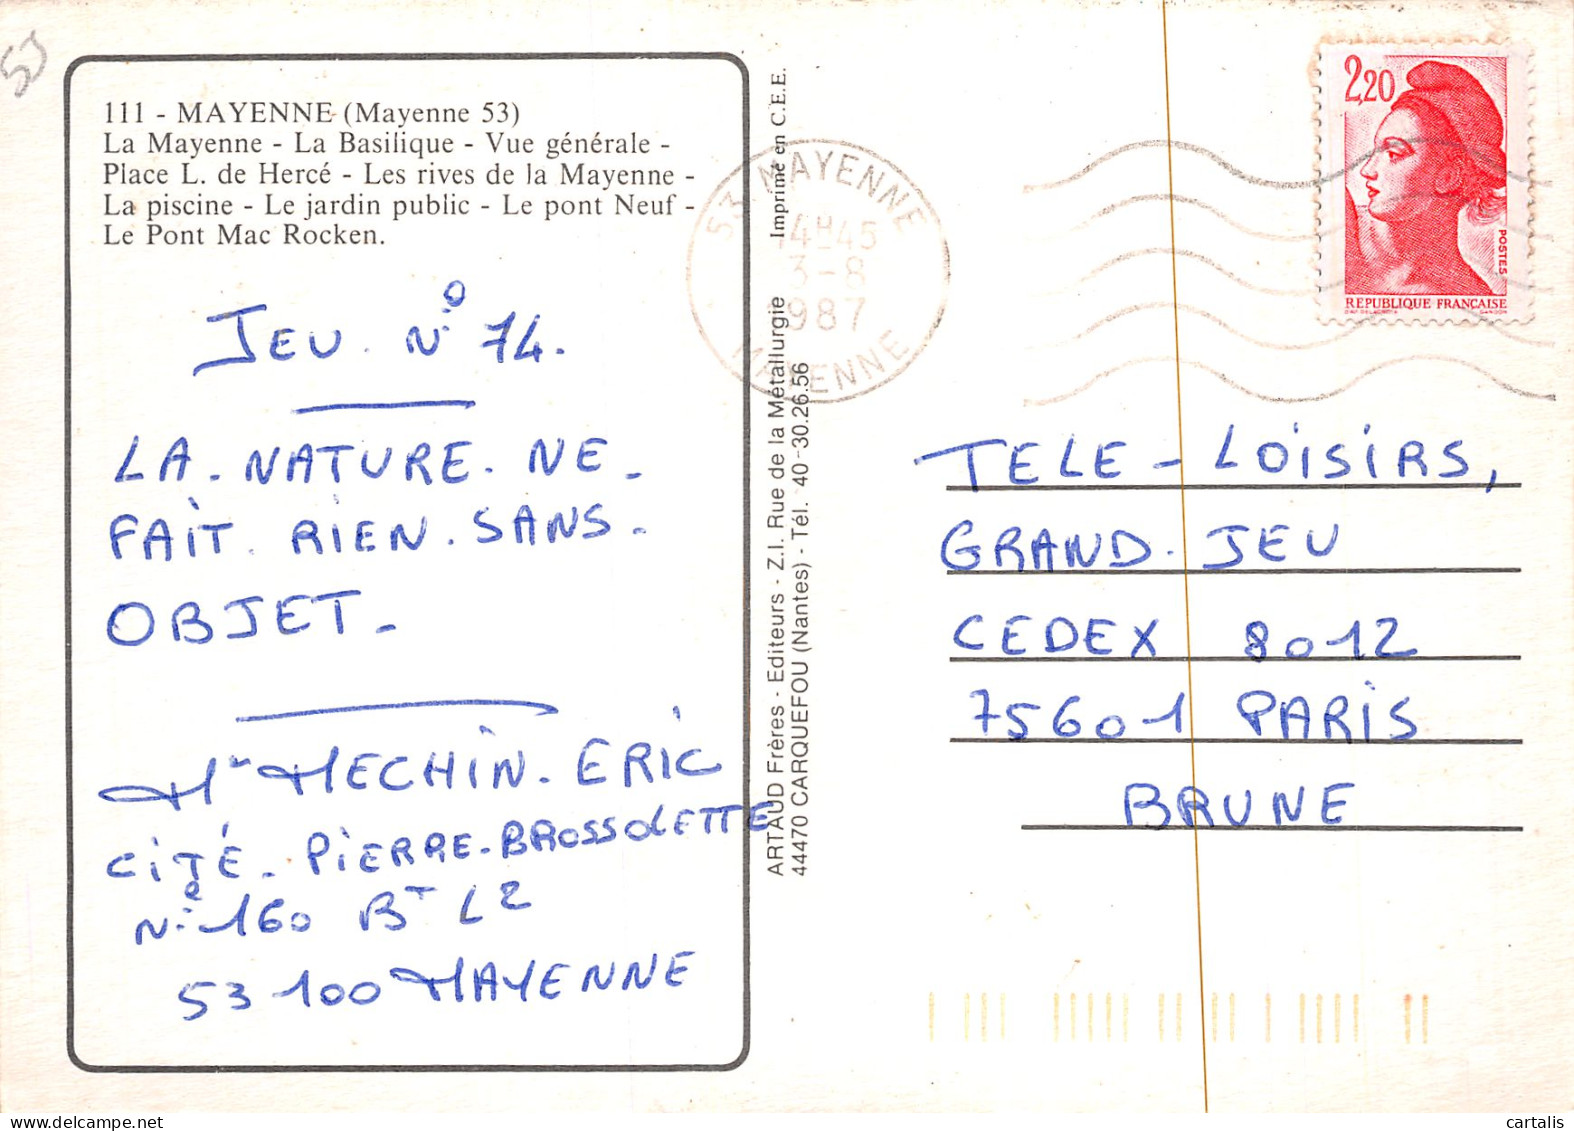 53
111 - MAYENNE (Mayenne 53)
La Mayenne - La Basilique - Vue générale -
Place L. de Hercé - Les rives de la Mayenne -
La piscine - Le jardin public - Le pont Neuf -
Le Pont Mac Rocken.
JEU. N° 74.
LA. NATURE. NE.
FAIT. RIEN. SANS.
OBJET.
Mr MECHIN. ERIC
CITÉ. PIERRE. BROSSOLETTE
N° 160 BT L2
53 100 MAYENNE
ARTAUD Frères - Editeurs - Z.I. Rue de la Métallurgie Imprimé en C.E.E.
44470 CARQUEFOU (Nantes) - Tél. 40-30.26.56
53 MAYENNE
14H45
3-8
1987
MAYENNE
2,20
POSTES
REPUBLIQUE FRANÇAISE
D'AP. DELACROIX GANDON
TELE - LOISIRS,
GRAND. JEU
CEDEX 8012
75601 PARIS
BRUNE
cartalis